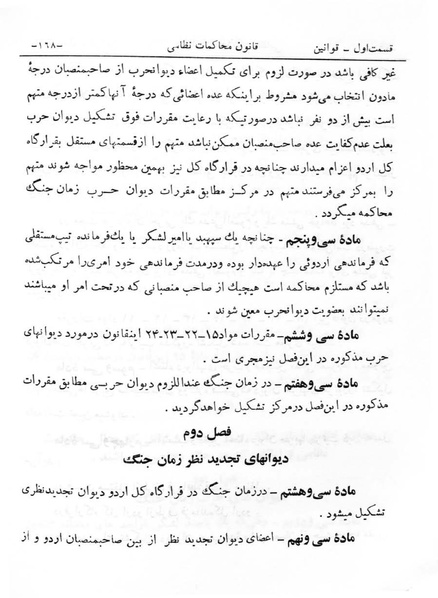 قسمت اول – قوانین
قانون محاکمات نظامی
-۱۶۸-
غیر کافی باشد در صورت لزوم برای تکمیل اعضاء دیوانحرب از صاحبمنصبان درجهٔ
مادون انتخاب می‌شود مشروط براینکه عده اعضائی که درجهٔ آنها کمتر از درجه متهم
است بیش از دو نفر نباشد درصورتیکه با رعایت مقررات فوق تشکیل دیوان حرب
بعلت عدم کفایت عده صاحبمنصبان ممکن نباشد متهم را از قسمتهای مستقل بقرارگاه
کل اردو اعزام میدارند چنانچه در قرارگاه کل نیز بهمین محظور مواجه شوند متهم
را بمرکز می‌فرستند متهم در مرکز مطابق مقررات دیوان حرب زمان جنگ
محاکمه میگردد .
مادهٔ سی‌وپنجم – چنانچه یك سپهبد یا امیر لشکر یا یك فرمانده تیپ مستقلی
که فرماندهی اردوئی را عهده‌دار بوده و درمدت فرماندهی خود امری را مرتکب شده
باشد که مستلزم محاکمه است هیچیك از صاحب منصبانی که در تحت امر او میباشند
نمیتوانند بعضویت دیوانحرب معین شوند .
مادهٔ سی وششم – مقررات مواد ۱۵–۲۲–۲۳–۲۴ اینقانون درمورد دیوانهای
حرب مذکوره در این فصل نیز مجری است .
مادهٔ سی وهفتم – در زمان جنگ عنداللزوم دیوان حربی مطابق مقررات
مذکوره در این فصل درمرکز تشکیل خواهد گردید .
فصل دوم
دیوانهای تجدید نظر زمان جنگ
مادهٔ سی وهشتم – درزمان جنگ در قرارگاه کل اردو دیوان تجدید نظری
تشکیل میشود .
مادهٔ سی ونهم – اعضای دیوان تجدید نظر از بین صاحبمنصبان اردو و از